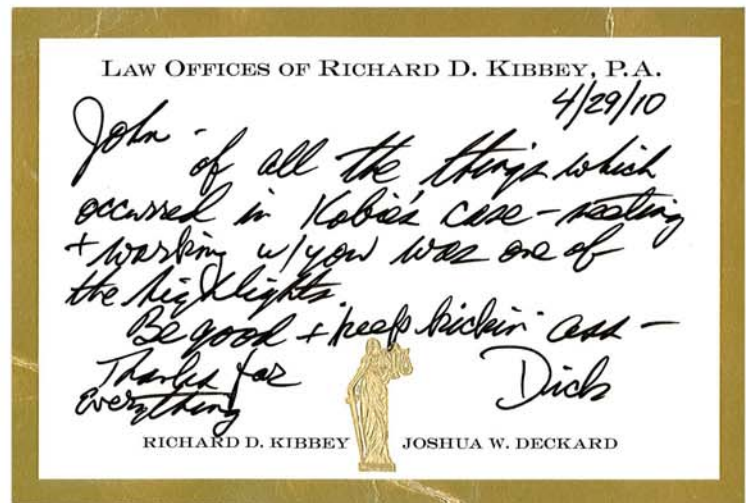 LAW OFFICES OF RICHARD D. KIBBEY, P.A.
4/29/10
John -
of all the things which
occurred in Kobie's case - meeting
+ working w/you was one of
the highlights.
Be good + keep kickin' ass -
Thanks for
Everything
Dick
RICHARD D. KIBBEY JOSHUA W. DECKARD